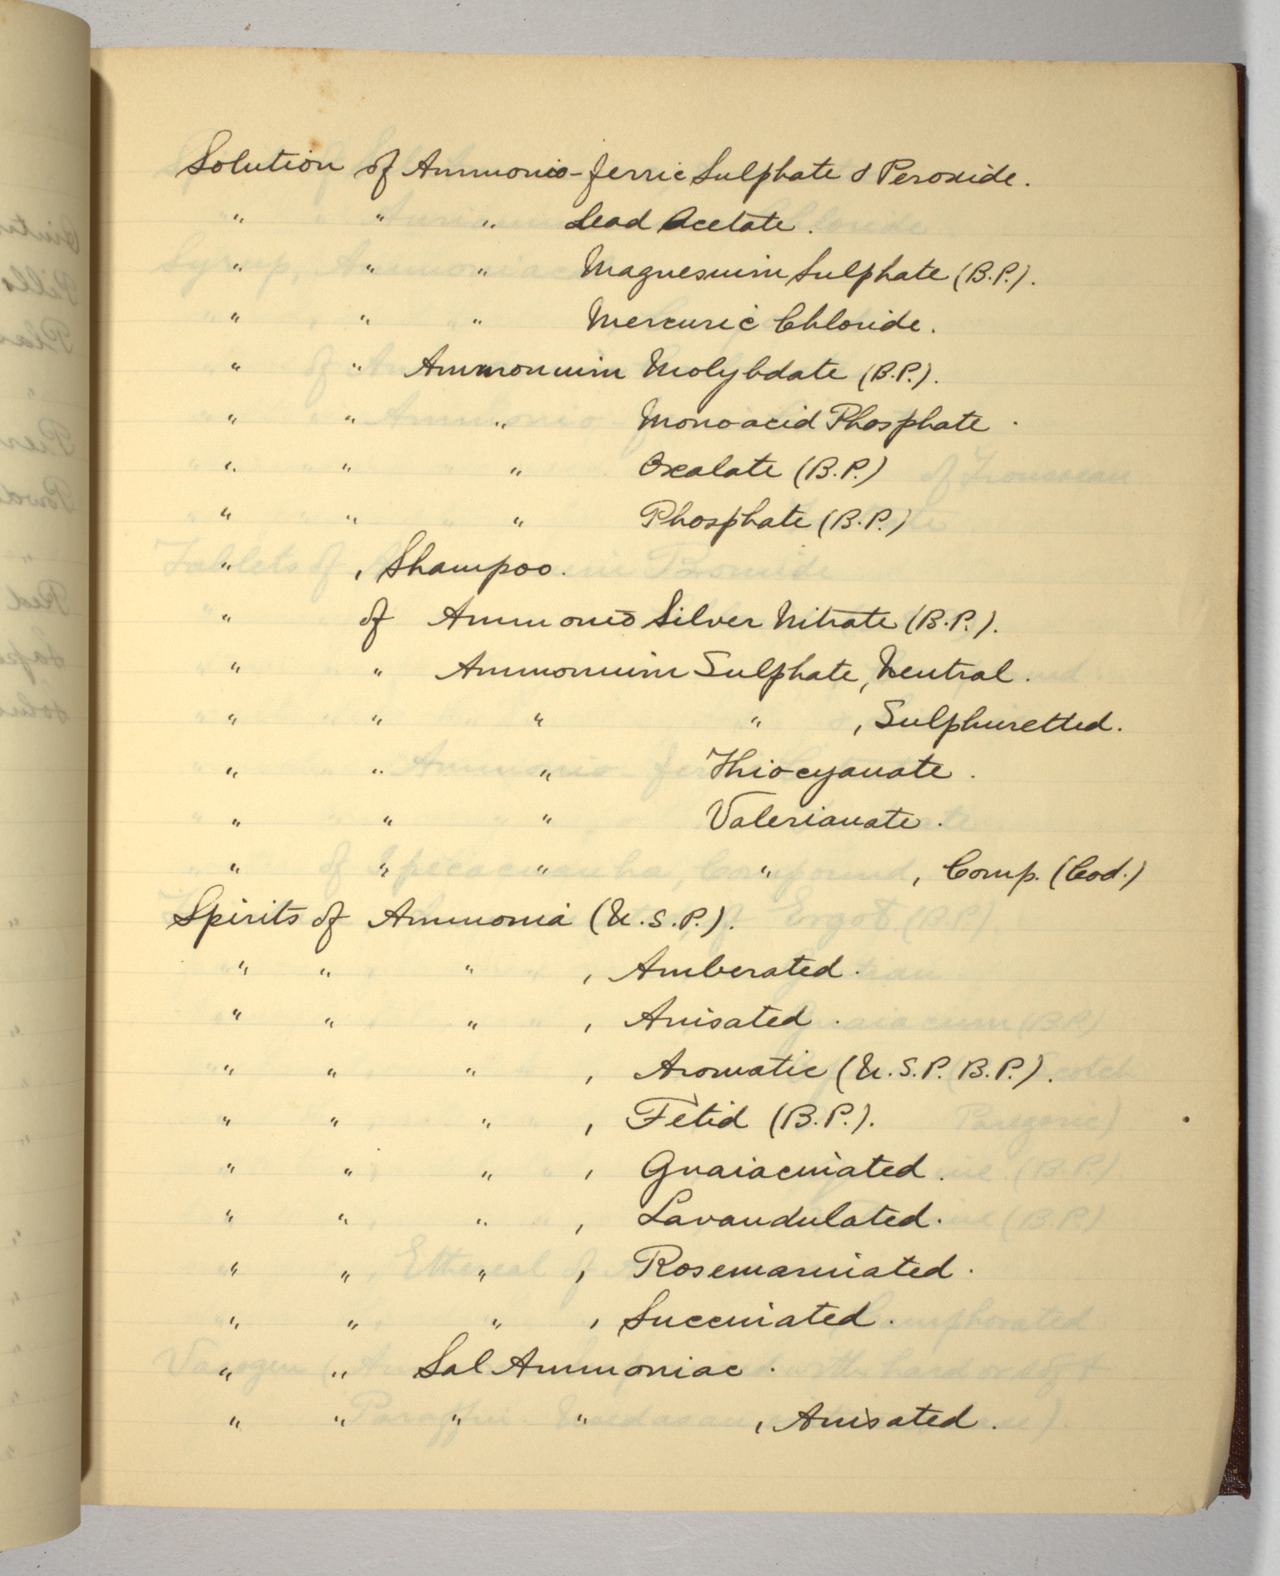 Solution of Ammonio-ferric Sulphate & Peroxide.
" " " Lead Acetate.
" " " Magnesium Sulphate (B.P.).
" " " Mercuric Chloride.
" " Ammonium Molybdate (B.P.).
" " " Monoacid Phosphate.
" " " Oxalate (B.P.)
" " " Phosphate (B.P.)
" , Shampoo.
" of Ammonio Silver Nitrate (B.P.).
" " Ammonium Sulphate, Neutral.
" " " " , Sulphuretted.
" " " Thiocyanate.
" " " Valerianate.
" " " " , Comp. (Cod.)
Spirits of Ammonia (U.S.P.).
" " " , Amberated.
" " " , Anisated.
" " " , Aromatic (U.S.P. B.P.).
" " " , Fetid (B.P.).
" " " , Guaiacuiated.
" " " , Lavandulated.
" " " , Rosemariniated.
" " " , Succiniated.
" " Sal Ammoniac.
" " " " , Anisated.